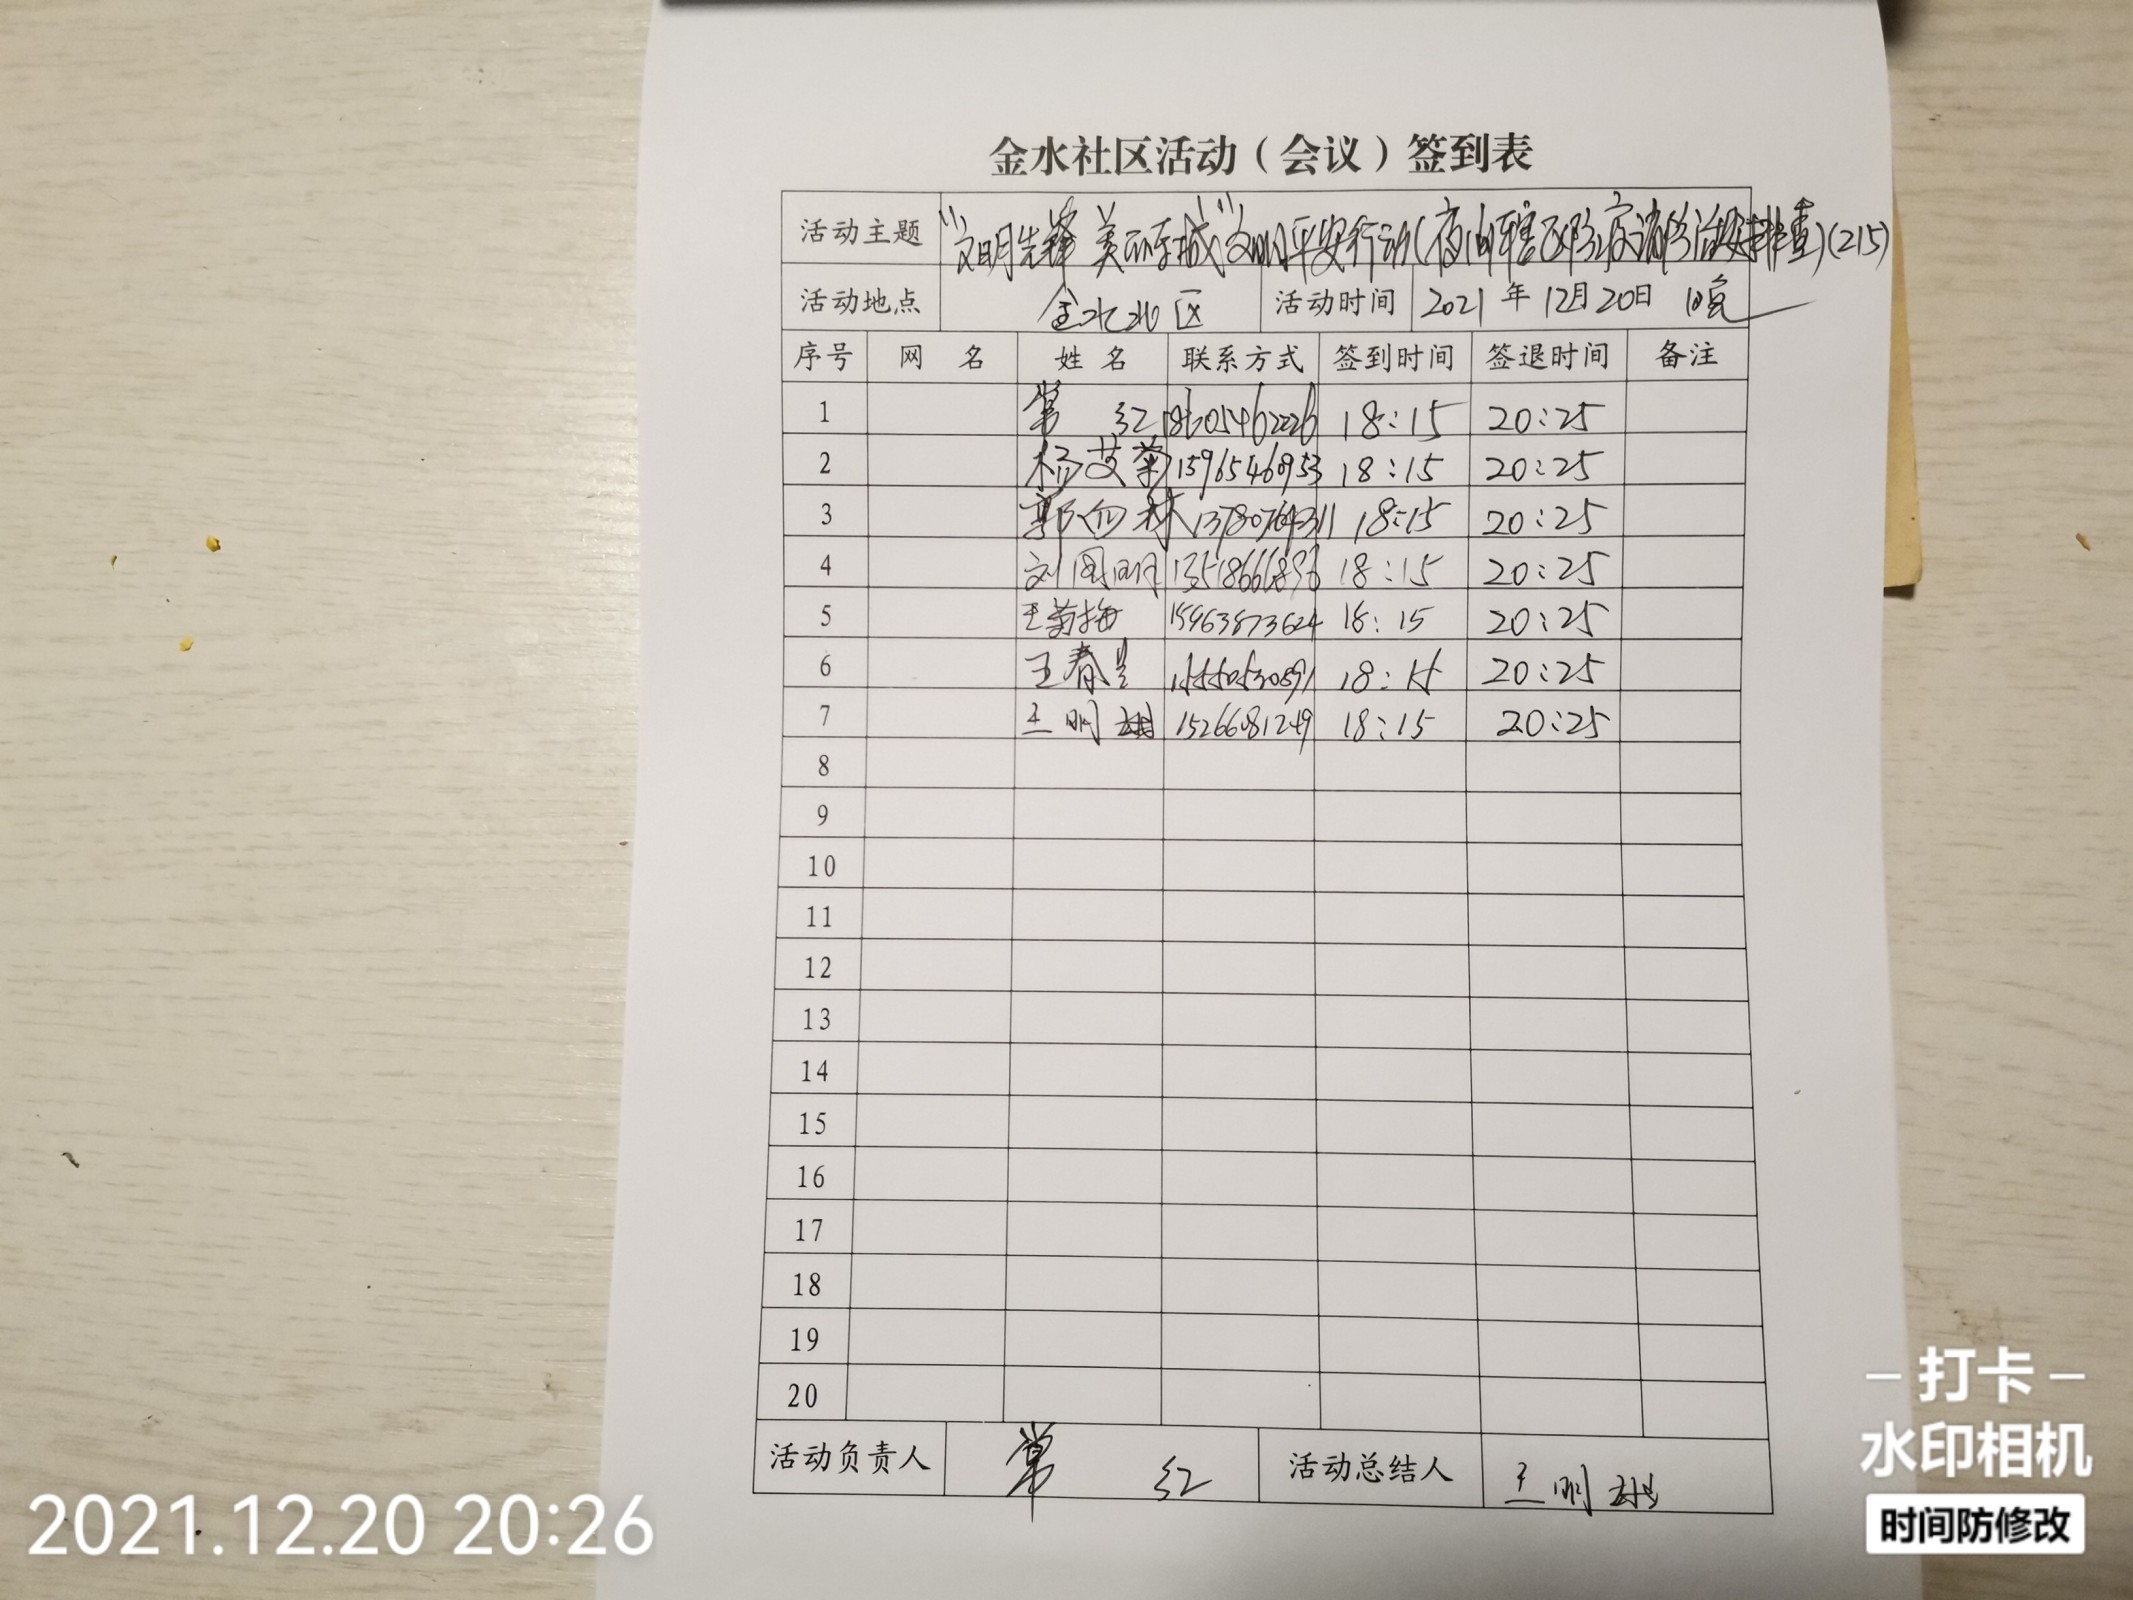 金水社区活动（会议）签到表
活动主题 "文明先锋 美丽东城"文明平安行动(夜间辖区 排查)(215)
活动地点 金水北区 活动时间 2021年12月20日
序号 网 名 姓 名 联系方式 签到时间 签退时间 备注
1 常 红 18605462226 18:15 20:25
2 杨艾菊 18:15 20:25
3 郭向林 13780764311 18:15 20:25
4 刘国明 18:15 20:25
5 王菊梅 15963873624 18:15 20:25
6 王春 18:15 20:25
7 王明 15266081249 18:15 20:25
8
9
10
11
12
13
14
15
16
17
18
19
20
活动负责人 常 红 活动总结人 王明
2021.12.20 20:26
打卡
水印相机
时间防修改